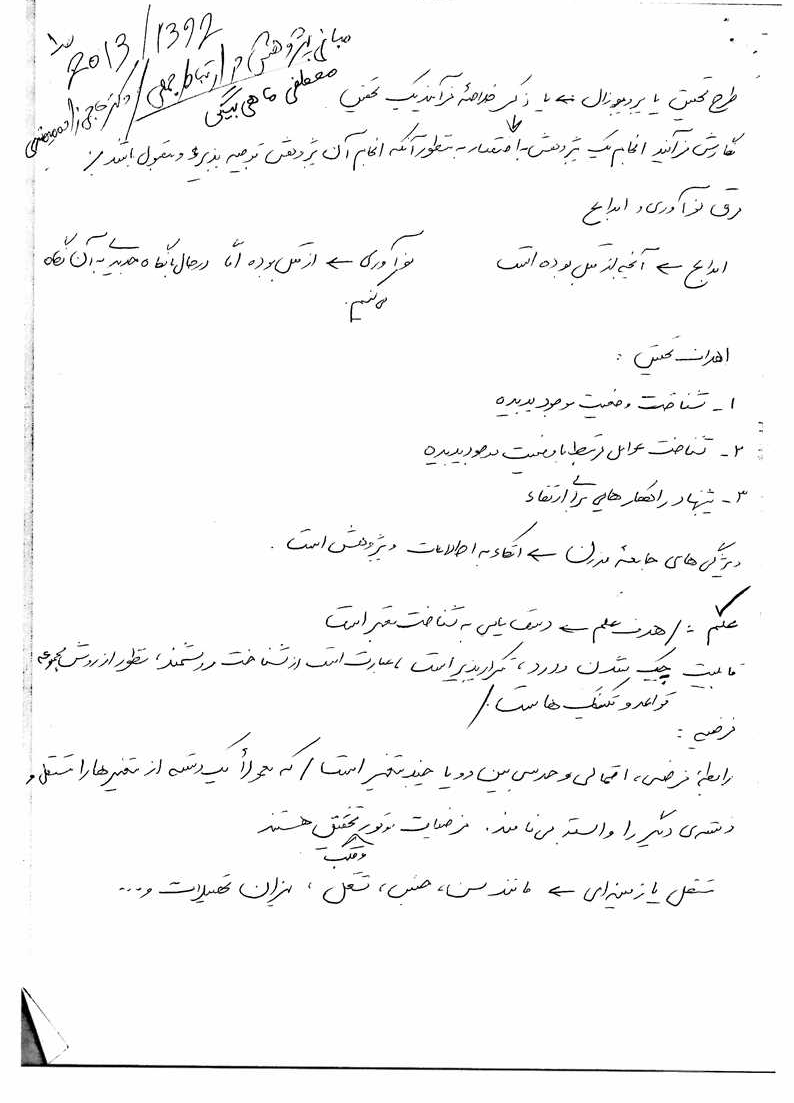 2013/1392
مبانی پژوهش در ارتباط جمعی / دکتر حاجی زاده میمندی
مصطفی ماهی بیگی
طرح تحقیق یا پروپوزال ← یا ذکر خلاصهٔ فرآیند یک تحقیق
نگارش فرآیند انجام یک پژوهش به اختصار به منظور آنکه انجام آن پژوهش توجیه پذیر و معقول باشد
فرق نوآوری و ابداع
ابداع ← آنچه از قبل بوده است
نوآوری ← از قبل بوده امّا درحال با نگاه جدیدی به آن نگاه
می‌کنیم.
اهداف تحقیق :
۱- شناخت وضعیت موجود پدیده
۲- شناخت عوامل مرتبط با وضعیت موجود پدیده
۳- پیشنهاد راهکارهایی برای ارتقاء
ویژگی های جامعهٔ مدرن ← اتکاء به اطلاعات و پژوهش است.
علم :/ هدف علم ← دست یابی به شناخت معتبر است
قابلیت چک شدن دارد، تکرارپذیر است، عبارت است از شناخت روشمند، منظور از روش مجموعه
قواعد و تکنیک هاست./
فرضیه :
رابطهٔ فرضی، احتمالی و حدسی بین دو یا چند متغیر است / که معمولاً یک دسته از متغیرها را مستقل و
دسته‌ی دیگر را وابسته می‌نامند. فرضیات موتور تحقیق هستند
و قلب
مستقل یا زمینه‌ای ← مانند سن، جنس، شغل، میزان تحصیلات و...